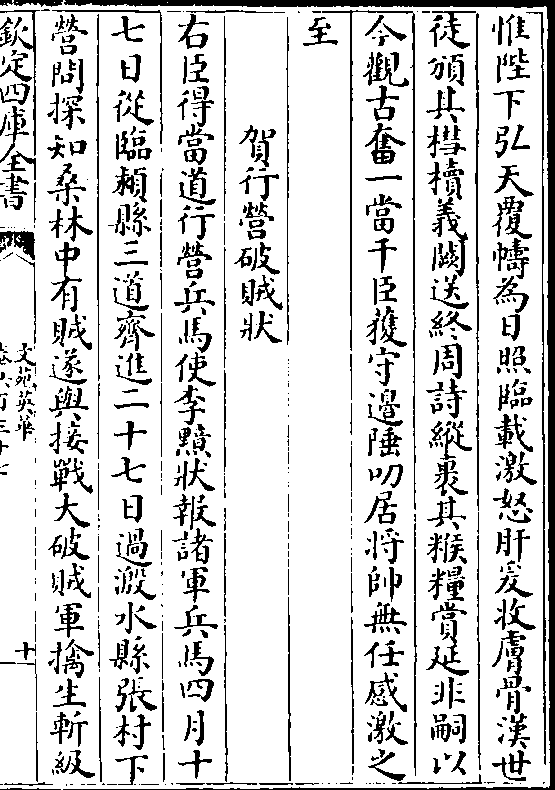 惟陛下弘天覆幬為日照臨載激怒肝爰收膚骨漢世
徒頒其槥櫝義闕送終周詩縱裹其糇糧賞延非嗣以
今觀古奮一當千臣獲守邊陲叨居將帥無任感激之
至
賀行營破賊狀
右臣得當道行營兵馬使李黰狀報諸軍兵馬四月十
七日從臨潁縣三道齊進二十七日過溵水縣張村下
營問探知桑林中有賊遂與接戰大破賊軍擒生斬級
欽定四庫全書
文苑英華
卷六百三十七
十